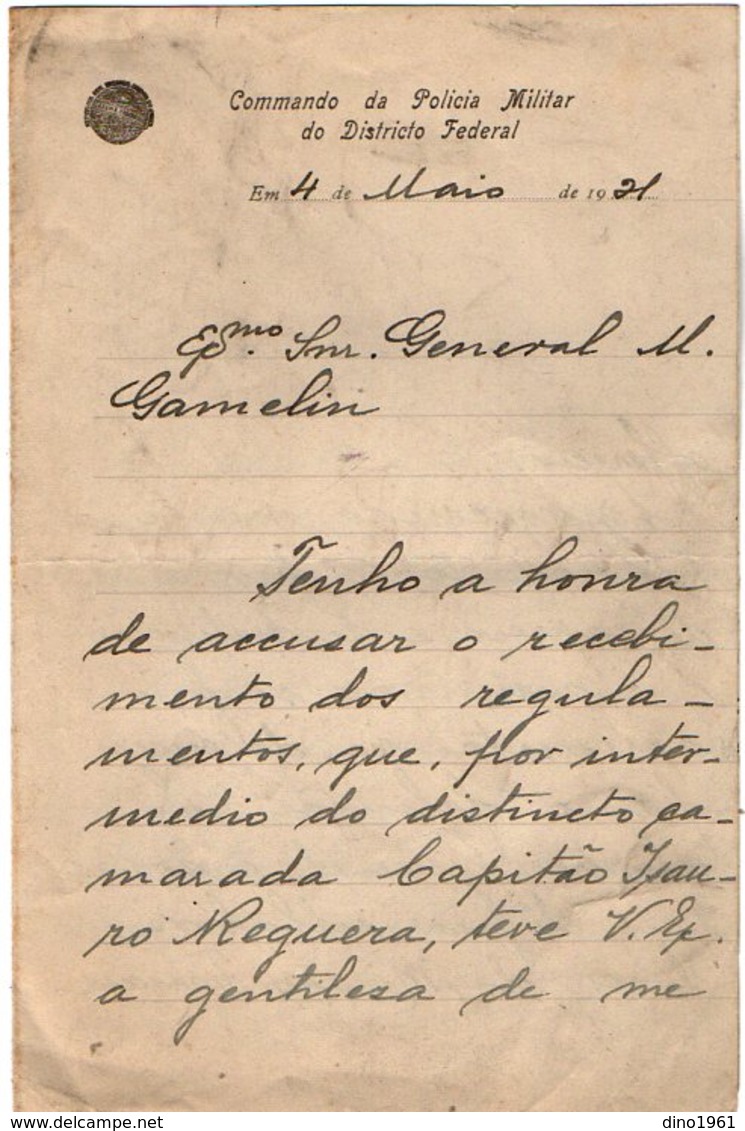 Commando da Policia Militar
do Districto Federal
Em 4 de Maio de 1921
Exmo. Snr. General M.
Gamelin
Tenho a honra
de accusar o recebi-
mento dos regula-
mentos, que, por inter-
medio do distincto ca-
marada Capitão Isau-
ro Reguera, teve V. Ex.
a gentilesa de me
www.delcampe.net
dino1961